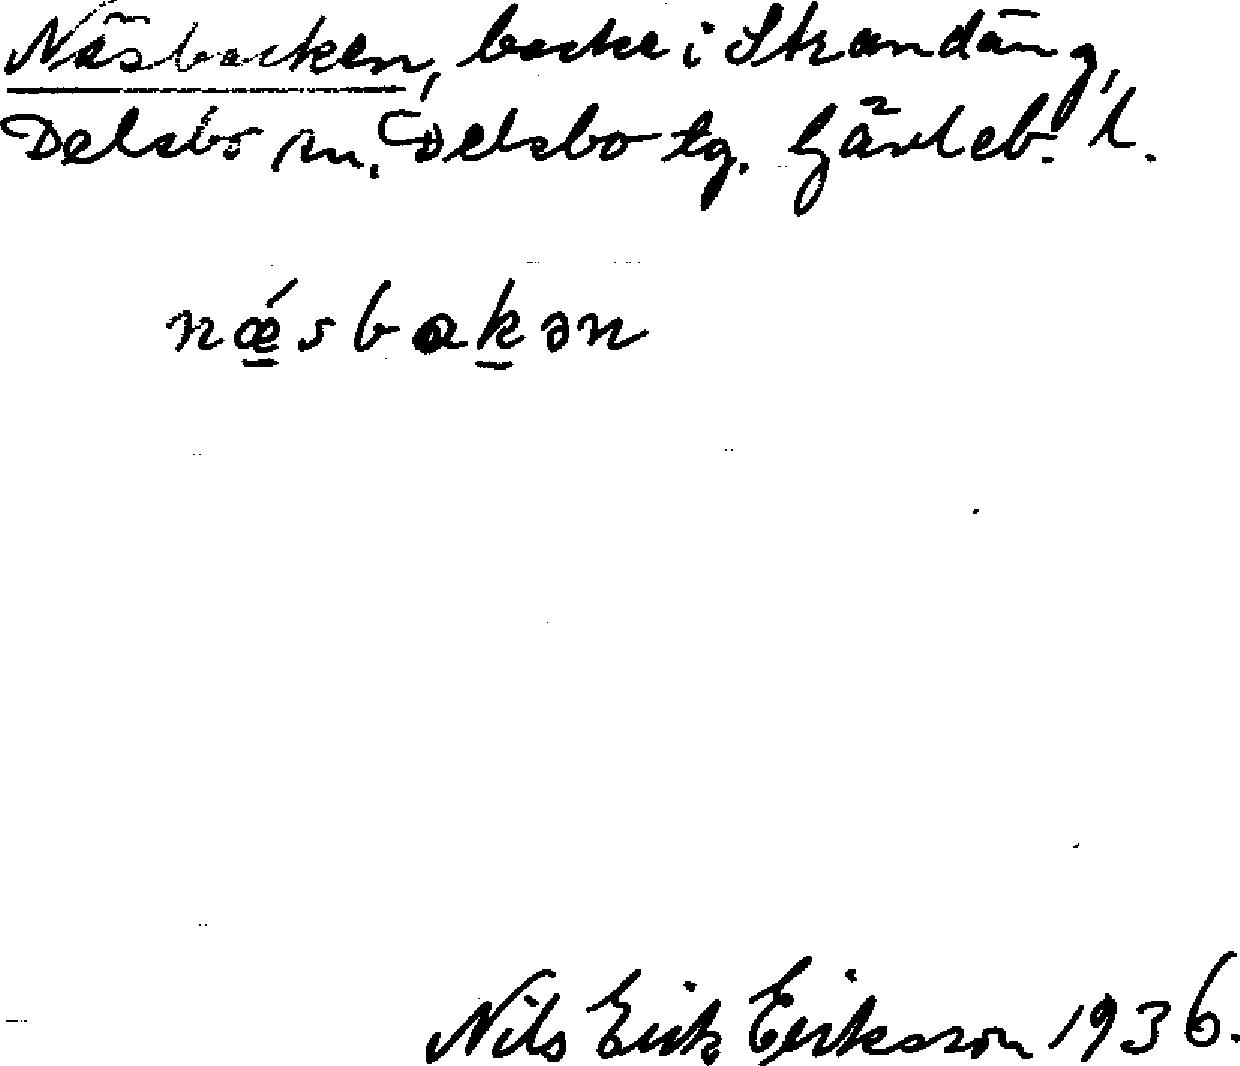 Näsbacken, backe i Strandäng,
Delsbo sn. Delsbo tg. Gävleb. l.
nǽsbakən
Nils Erik Eriksson 1936.